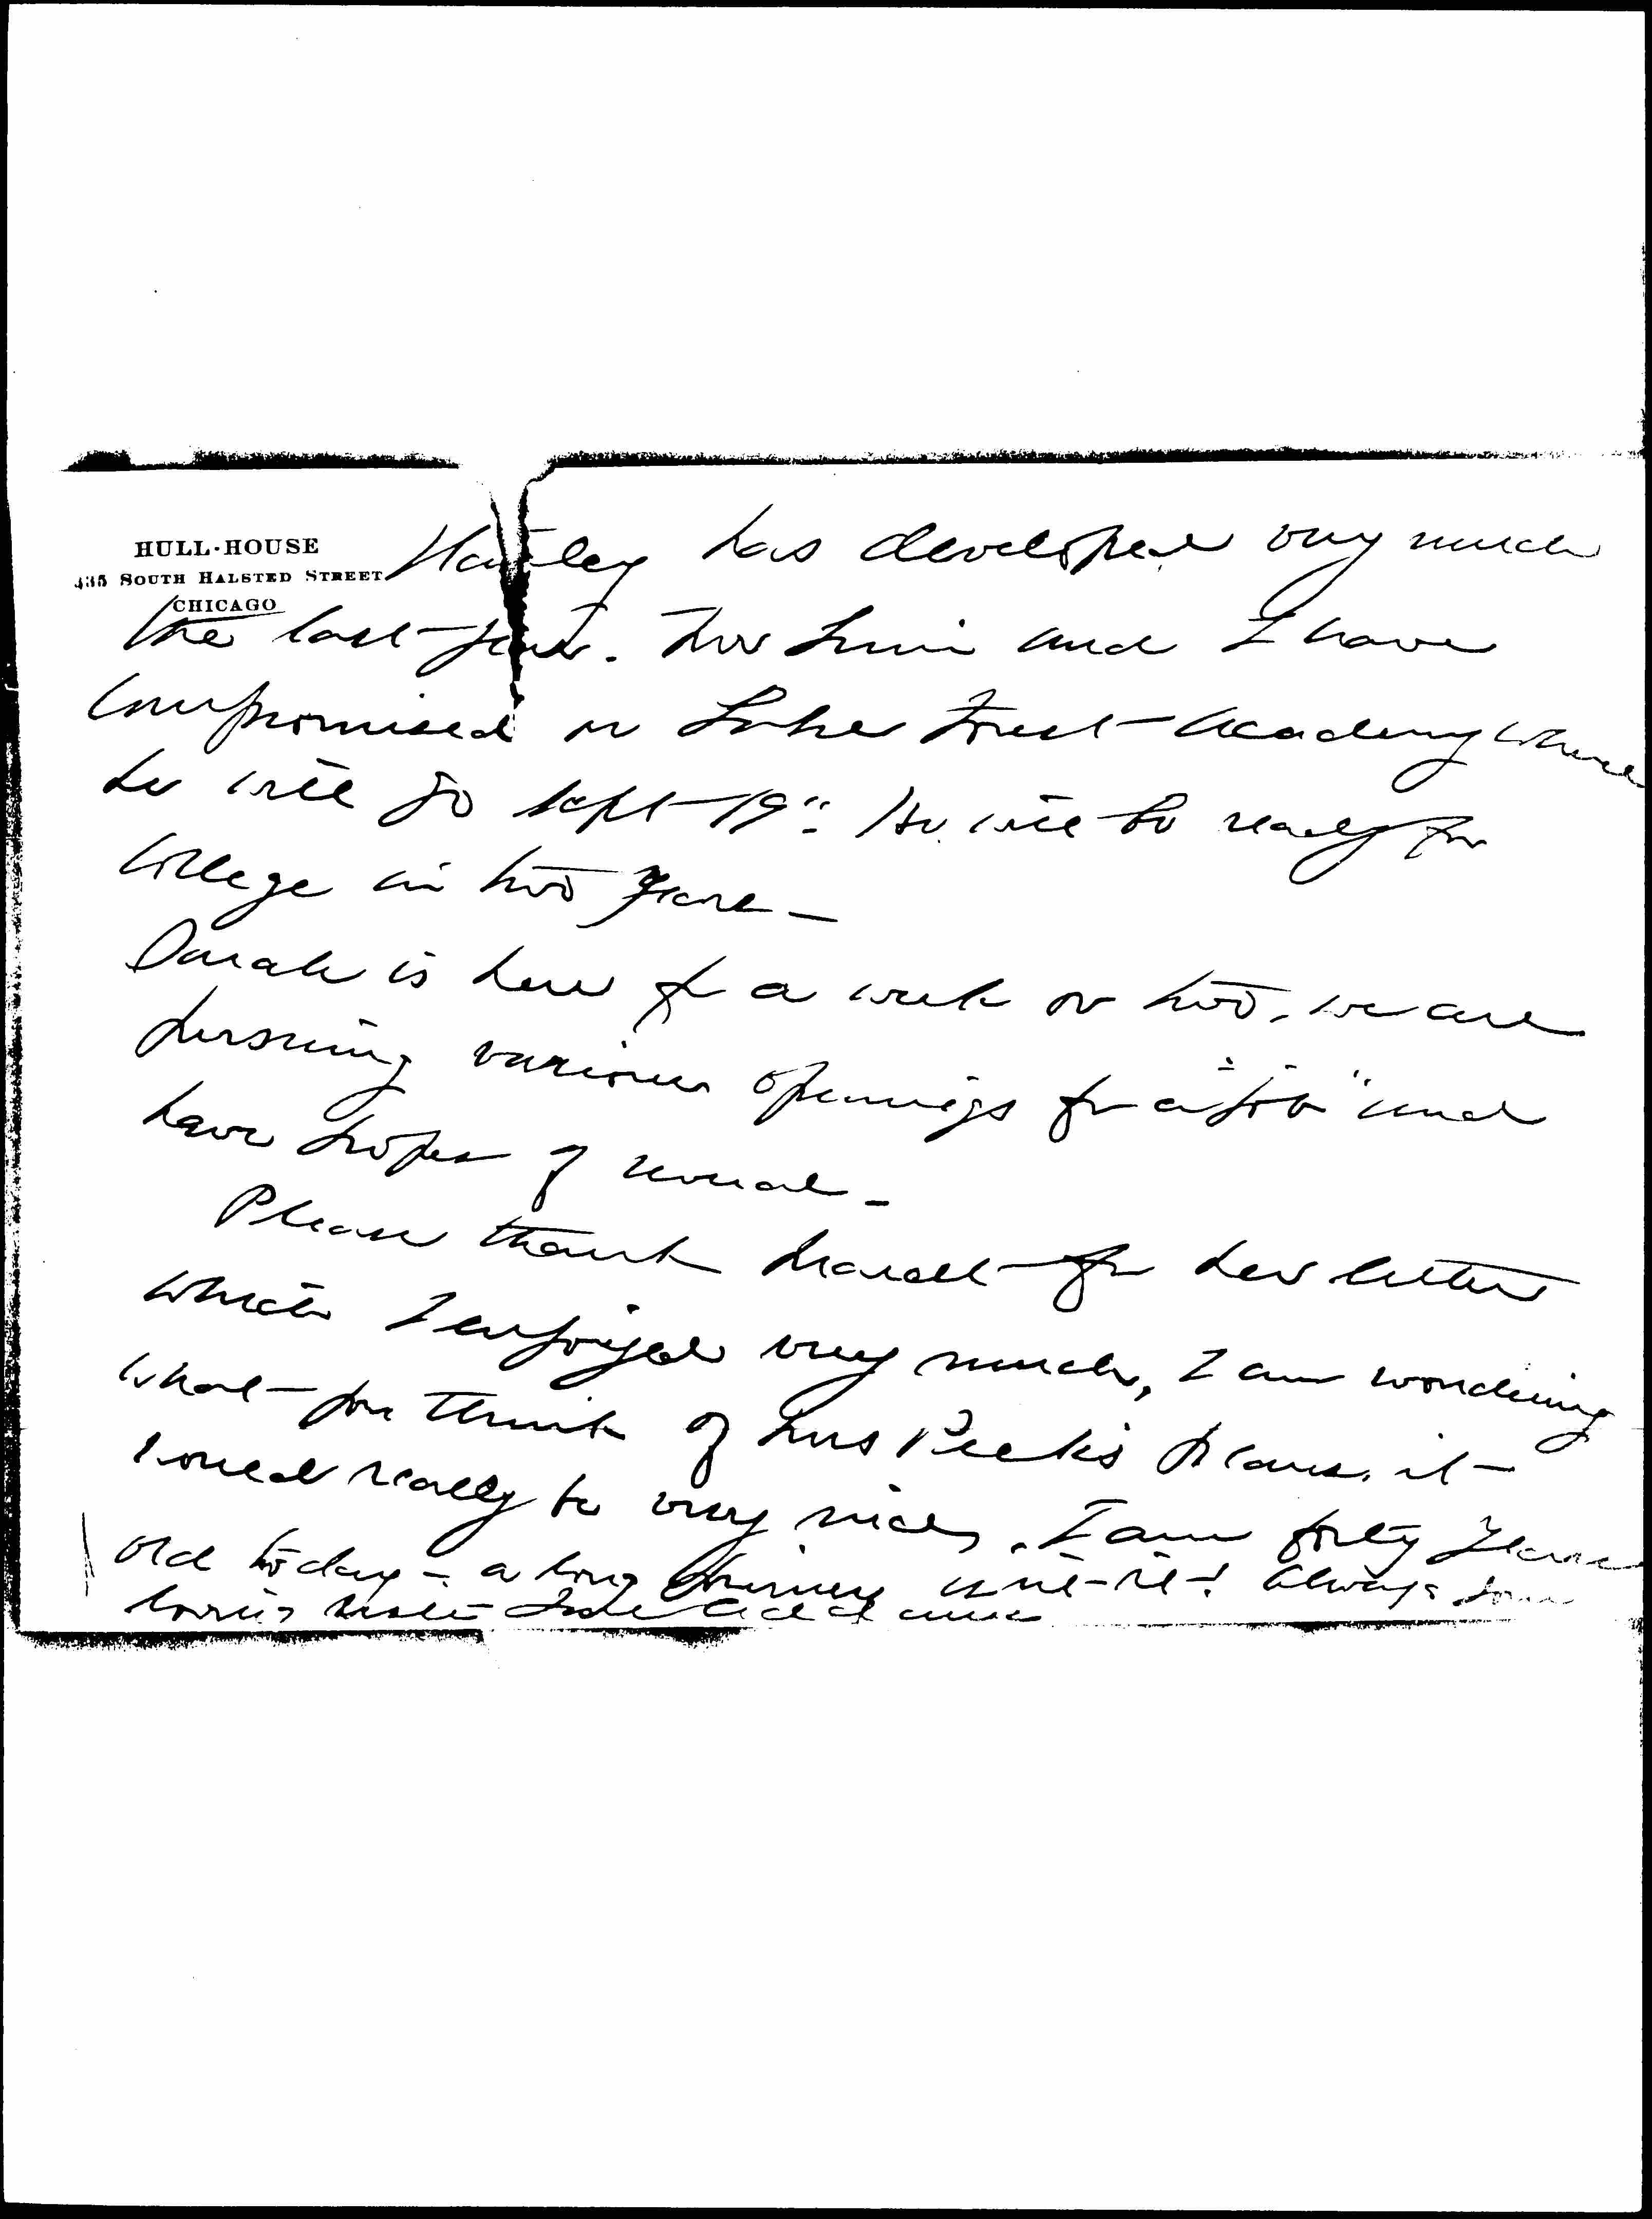 HULL-HOUSE
335 SOUTH HALSTED STREET
CHICAGO
Stanley has developed very much
the last year. Mr Linn and I have
compromised on Lake Forest Academy where
he will go Sept 19". He will be ready for
college in two years –
Sarah is here for a week or two, we are
pursuing various openings for a "job" and
have hopes of several –
Please thank for her letter
which I enjoyed very much, I am wondering
what you think of Mrs Peck's plans, it
would really be very nice. I am forty years
old today – a long journey isn't it! Always your
loving sister Jane Addams